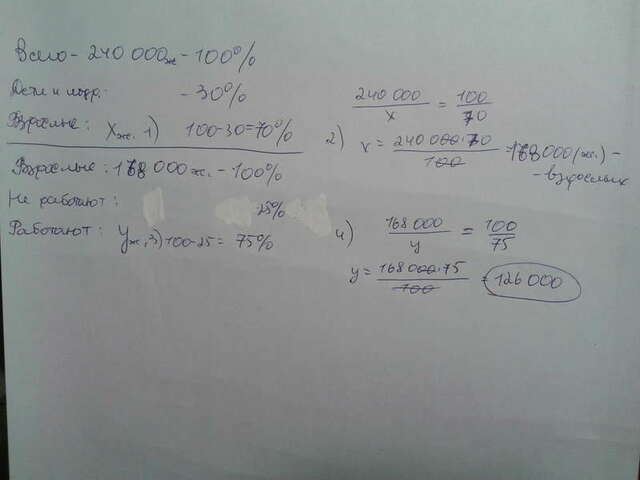 Всего - 240 000ж - 100%
Дети и подр.: - 30%
Взрослые: Xж. 1) 100-30=70%
Взрослые: 168 000 ж. - 100%
Не работают: 25%
Работают: Yж. 3) 100-25 = 75%
240 000 / x = 100 / 70
2) x = 240 000·70 / 100 = 168 000 (ж.) -
- взрослых
4) 168 000 / y = 100 / 75
y = 168 000·75 / 100 = 126 000